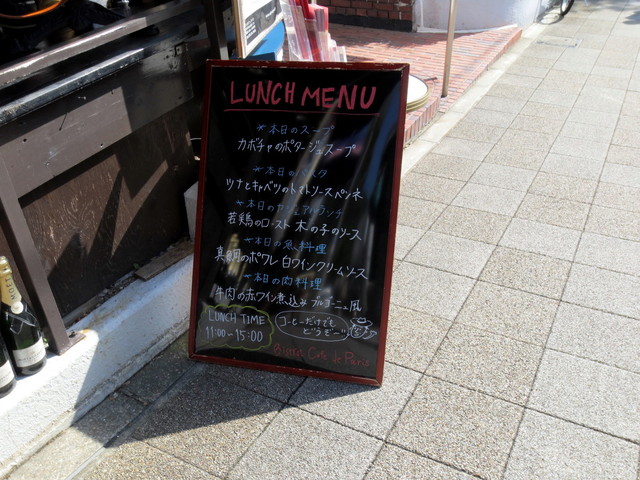 LUNCH MENU
*本日のスープ
カボチャのポタージュスープ
*本日のパスタ
ツナとキャベツのトマトソースペンネ
*本日のカジュアルランチ
若鶏のロースト 木の子のソース
*本日の魚料理
真鯛のポワレ 白ワインクリームソース
*本日の肉料理
牛肉の赤ワイン煮込み ブルゴーニュ風
LUNCH TIME
11:00-15:00
コーヒーだけでも
どうぞー
Bistrot Cafe de Paris